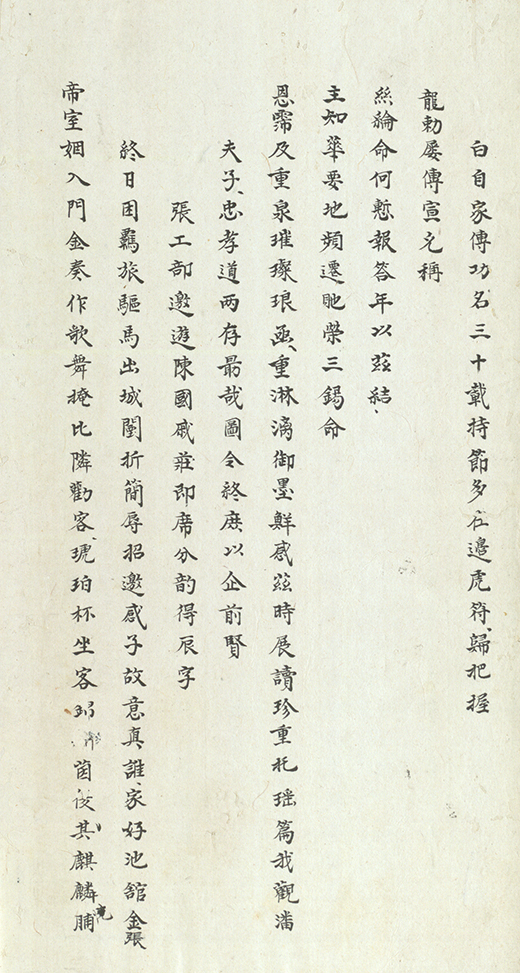 白自家傳功名三十載持節多在邊虎符歸把握
龍勅屡傳宣允稱
絲綸命何慙報答年以茲結
主知華要地頻遷貤榮三錫命
恩霈及重泉璀璨琅函重淋漓御墨鮮感茲時展讀珍重托瑶篇我觀潘
夫子忠孝道两存最哉圖令終庶以企前賢
張工部邀遊陳國戚莊即席分韵得辰字
終日困羇旅驅馬出城闉折簡辱招邀感子故意真誰家好池舘金張
帝室姻入門金奏作歌舞掩比隣勸客琥珀杯坐客 其麒麟脯